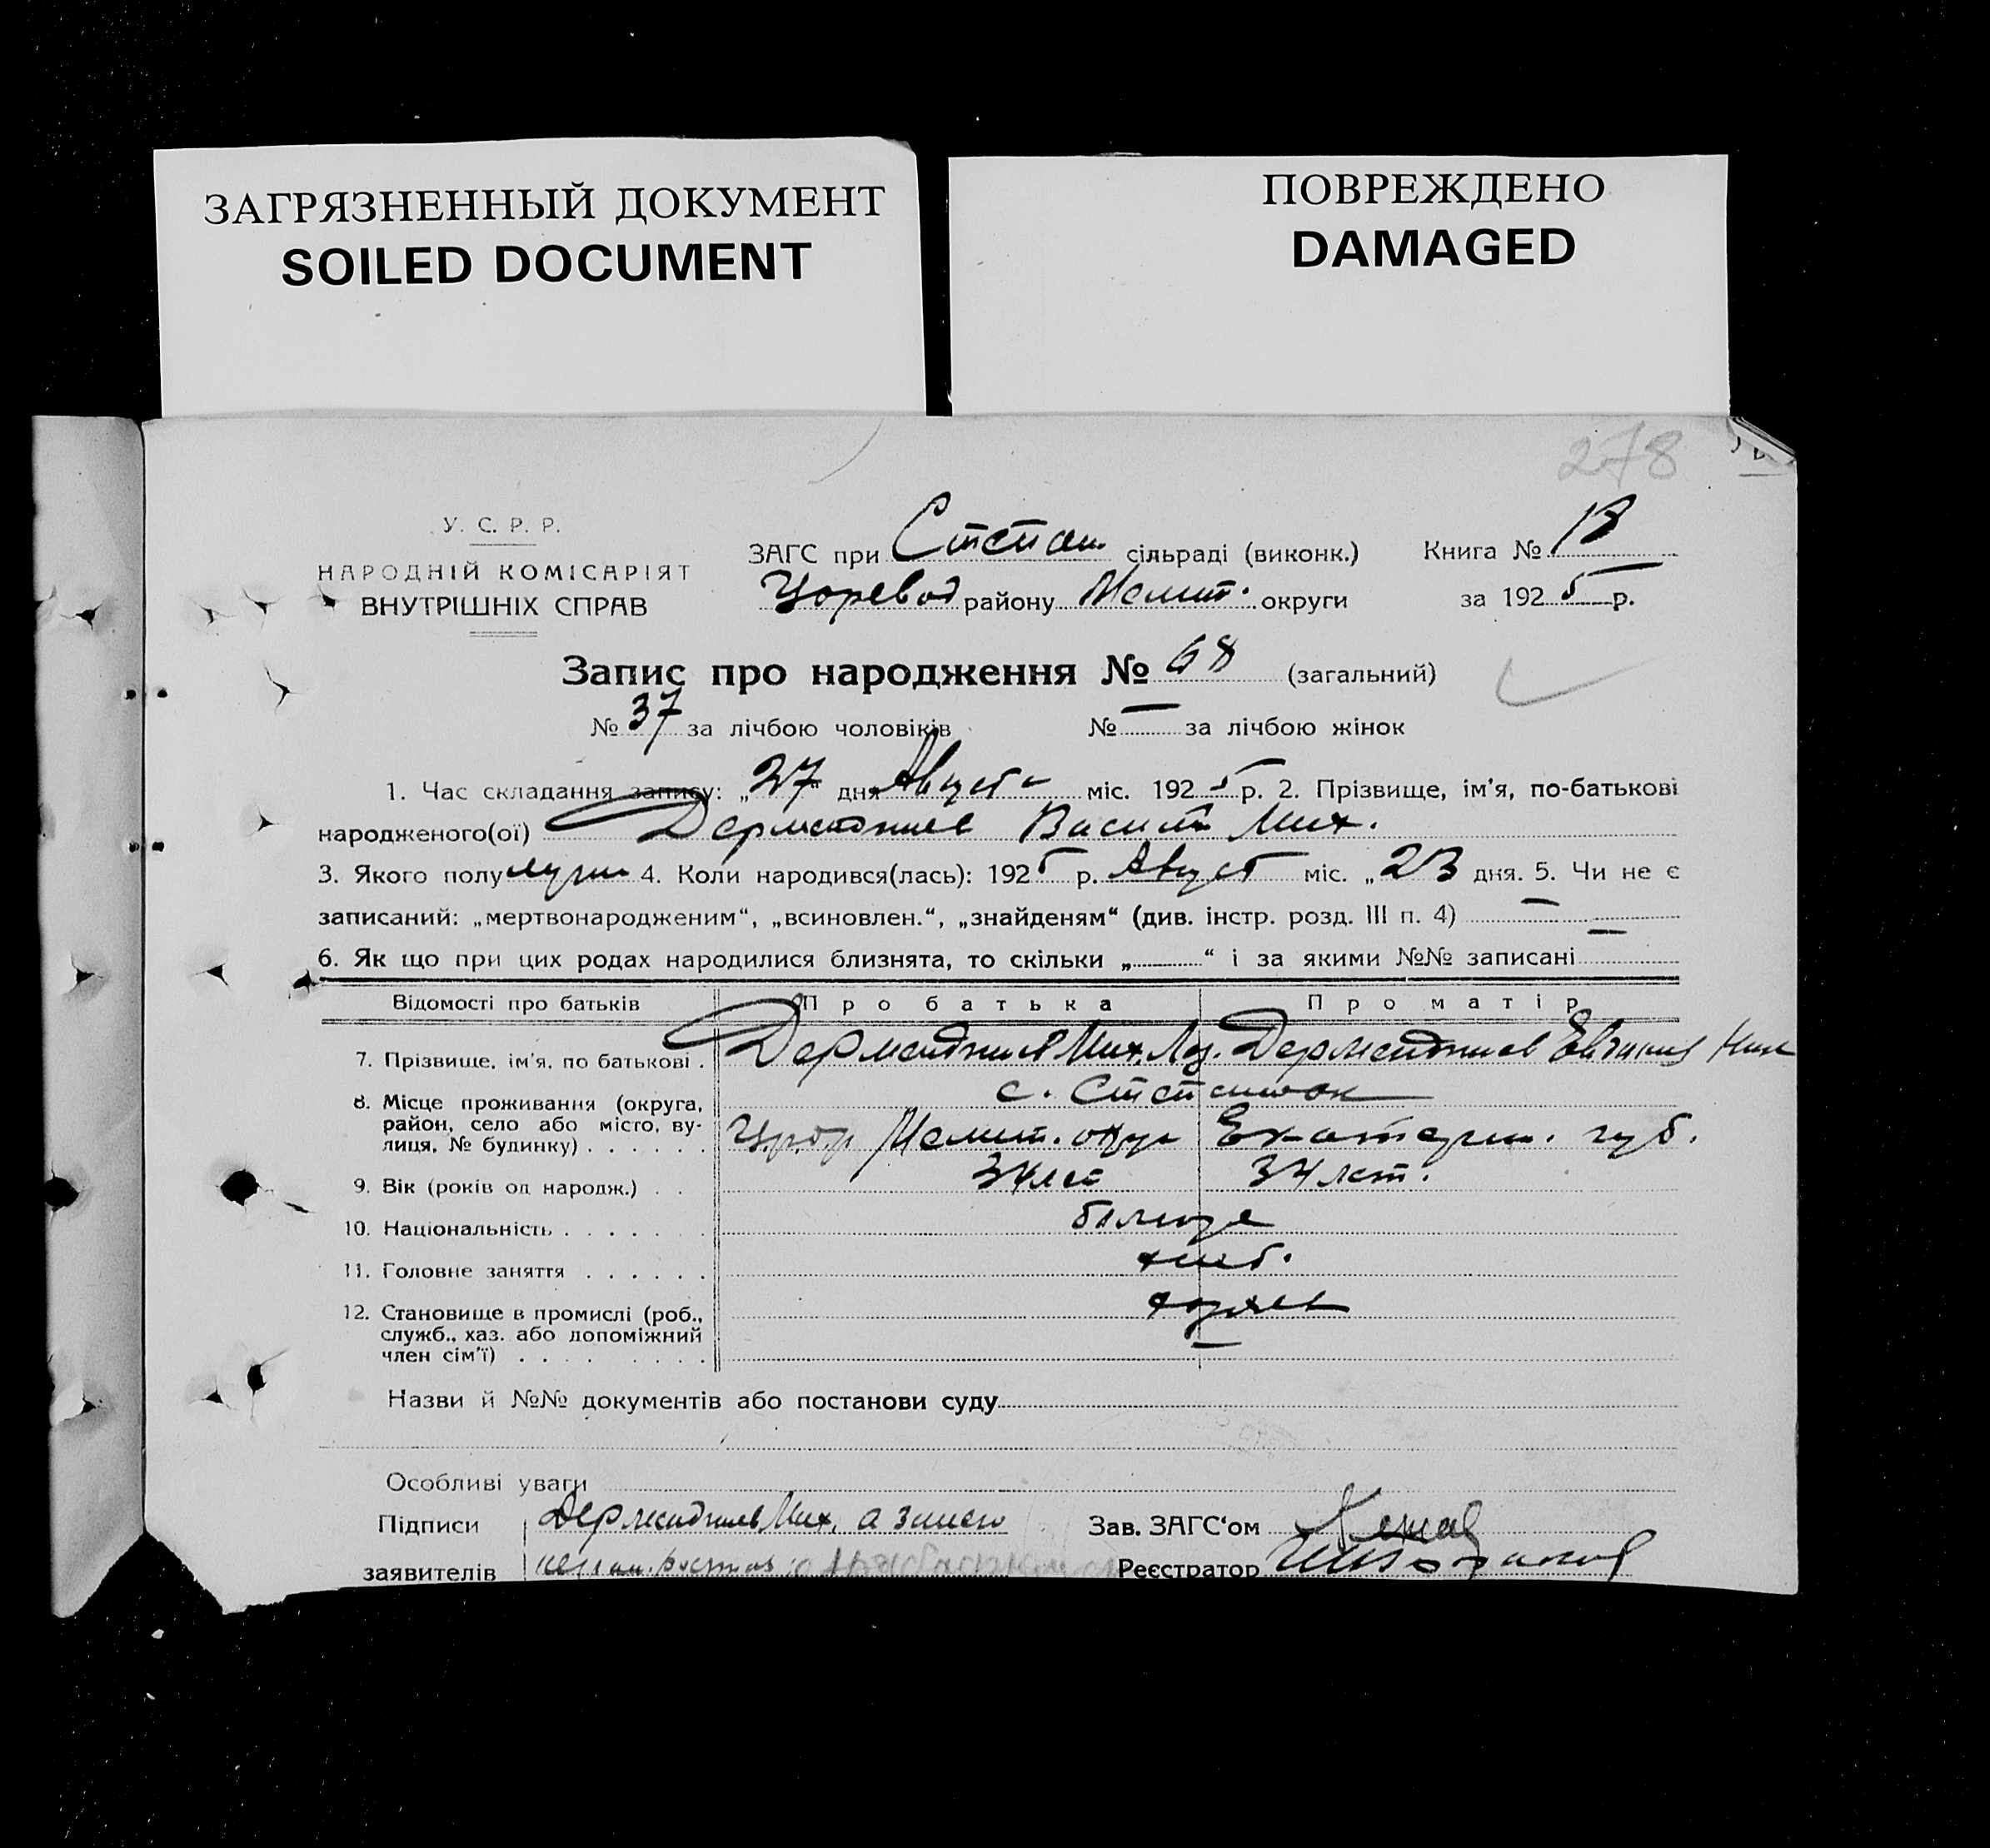 ЗАГРЯЗНЕННЫЙ ДОКУМЕНТ
SOILED DOCUMENT
ПОВРЕЖДЕНО
DAMAGED
278
У. С. Р. Р.
НАРОДНІЙ КОМІСАРІЯТ
ВНУТРІШНІХ СПРАВ
ЗАГС при Степан. сільраді (виконк.) Книга №
району Мелит. округи за 1925 р.
Запис про народження № 68 (загальний)
№ 37 за лічбою чоловіків № — за лічбою жінок
1. Час складання запису: „27" дня Августа міс. 1925 р. 2. Прізвище, ім'я, по-батькові
народженого(ої) Дерменджиев Васил Мих.
3. Якого полу муж 4. Коли народився(лась): 1925 р. Август міс. „23 дня. 5. Чи не є
записаний: „мертвонародженим“, „всиновлен.“, „знайденям“ (див. інстр. розд. III п. 4) —
6. Як що при цих родах народилися близнята, то скільки „ “ і за якими №№ записані —
Відомості про батьків Про батька Про матір
7. Прізвище, ім'я, по батькові . Дерменджиев Мих. Дерменджиев
8. Місце проживання (округа, с. Степановок
район, село або місто, ву-
лиця, № будинку) . . . . . . Мелит. окру Екатерин. губ.
9. Вік (років од народж.) . . 34 лет 34 лет.
10. Національність . . . . . . .
11. Головне заняття . . . . . . хлеб.
12. Становище в промислі (роб.,
служб., хаз. або допоміжний
член сім'ї) . . . . . . . . —
Назви й №№ документів або постанови суду
Особливі уваги
Підписи Дерменджиев Мих. а за него Зав. ЗАГС‘ом
заявителів Реєстратор